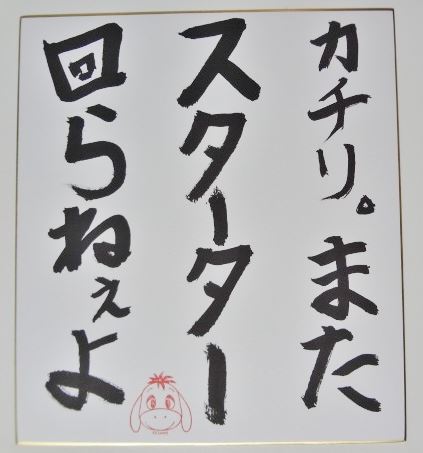 カチリ。また
スターター
回らねぇよ